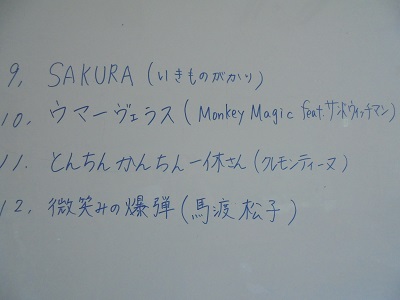 9. SAKURA (いきものがかり)
10. ウマーヴェラス (Monkey Magic feat. サンドウィッチマン)
11. とんちんかんちん一休さん (クレモンティーヌ)
12. 微笑みの爆弾 (馬渡松子)